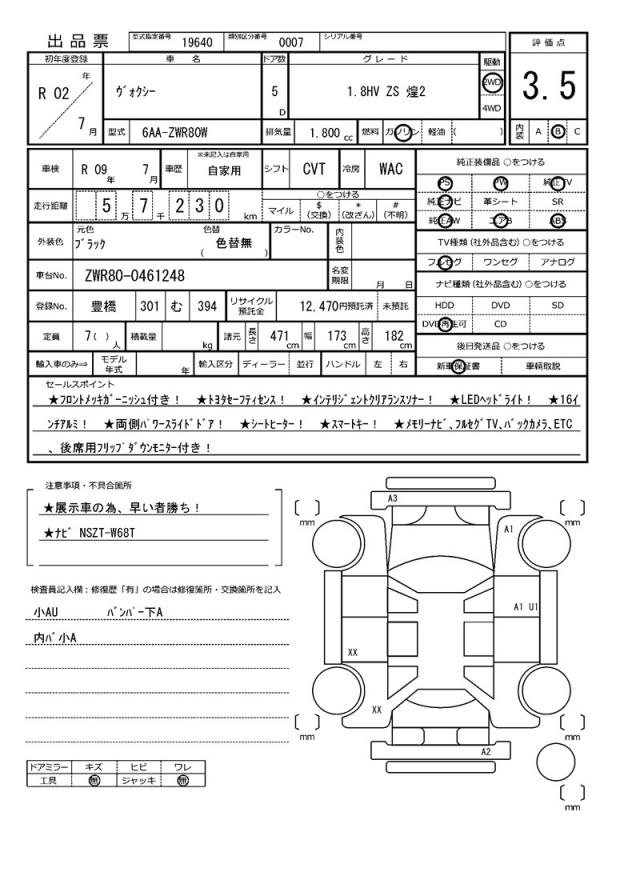 出品票 型式指定番号 19640 類別区分番号 0007 シリアル番号
評価点
3.5
初年度登録 車名 ドア数 グレード 駆動
R 02 年 7 月 ヴォクシー 5 D 1.8HV ZS 煌2 2WD 4WD
型式 6AA-ZWR80W 排気量 1.800 cc 燃料 ガソリン 軽油 ( ) 内装 A B C
車検 R 09 年 7 月 車歴 ※未記入は自家用 自家用 シフト CVT 冷房 WAC
純正装備品 ○をつける
PS PW 純正TV
純正ナビ 革シート SR
純正AW エアB ABS
走行距離 5 万 7 千 2 3 0 km
○をつける
マイル $ (交換) * (改ざん) # (不明)
TV種類 (社外品含む) ○をつける
フルセグ ワンセグ アナログ
外装色 元色 ブラック 色替 ( 色替無 ) カラーNo. 内装色
車台No. ZWR80-0461248 名変期限 月 日
ナビ種類 (社外品含む) ○をつける
HDD DVD SD
DVD再生可 CD
登録No. 豊橋 301 む 394 リサイクル預託金 12,470円預託済 未預託
定員 7( ) 人 積載量 kg 諸元 長さ 471 cm 幅 173 cm 高さ 182 cm
後日発送品 ○をつける
新車保証書 車輌取説
輸入車のみ⇒ モデル年式 年 輸入区分 ディーラー 並行 ハンドル 左 右
セールスポイント
★フロントメッキガーニッシュ付き! ★トヨタセーフティセンス! ★インテリジェントクリアランスソナー! ★LEDヘッドライト! ★16イ
ンチアルミ! ★両側パワースライドドア! ★シートヒーター! ★スマートキー! ★メモリーナビ、フルセグTV、バックカメラ、ETC
、後席用フリップダウンモニター付き!
注意事項・不具合箇所
★展示車の為、早い者勝ち!
★ナビ NSZT-W68T
検査員記入欄:修復歴「有」の場合は修復箇所・交換箇所を記入
小AU バンパー下A
内バ小A
ドアミラー キズ ヒビ ワレ
工具 無 ジャッキ 無
A3
mm mm
A1
A1 U1
XX
XX
mm mm
A2
mm